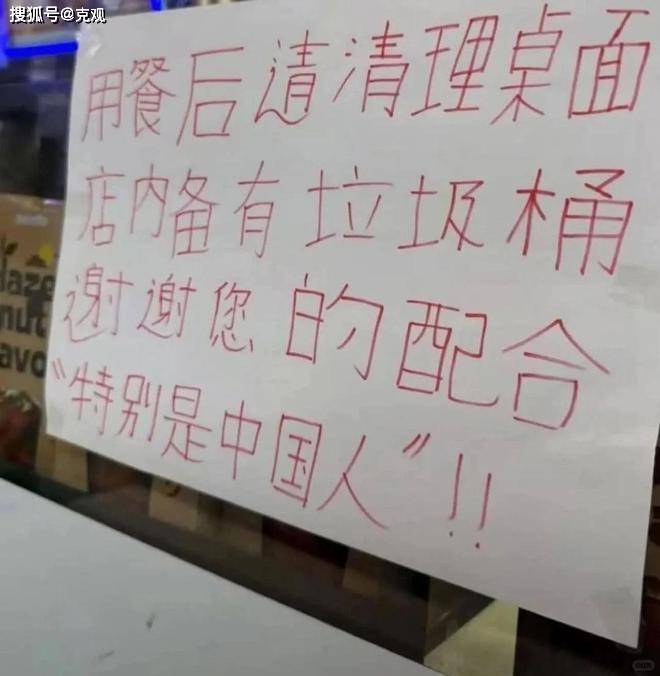 搜狐号@克观
用餐后请清理桌面
店内备有垃圾桶
谢谢您的配合
“特别是中国人”!!